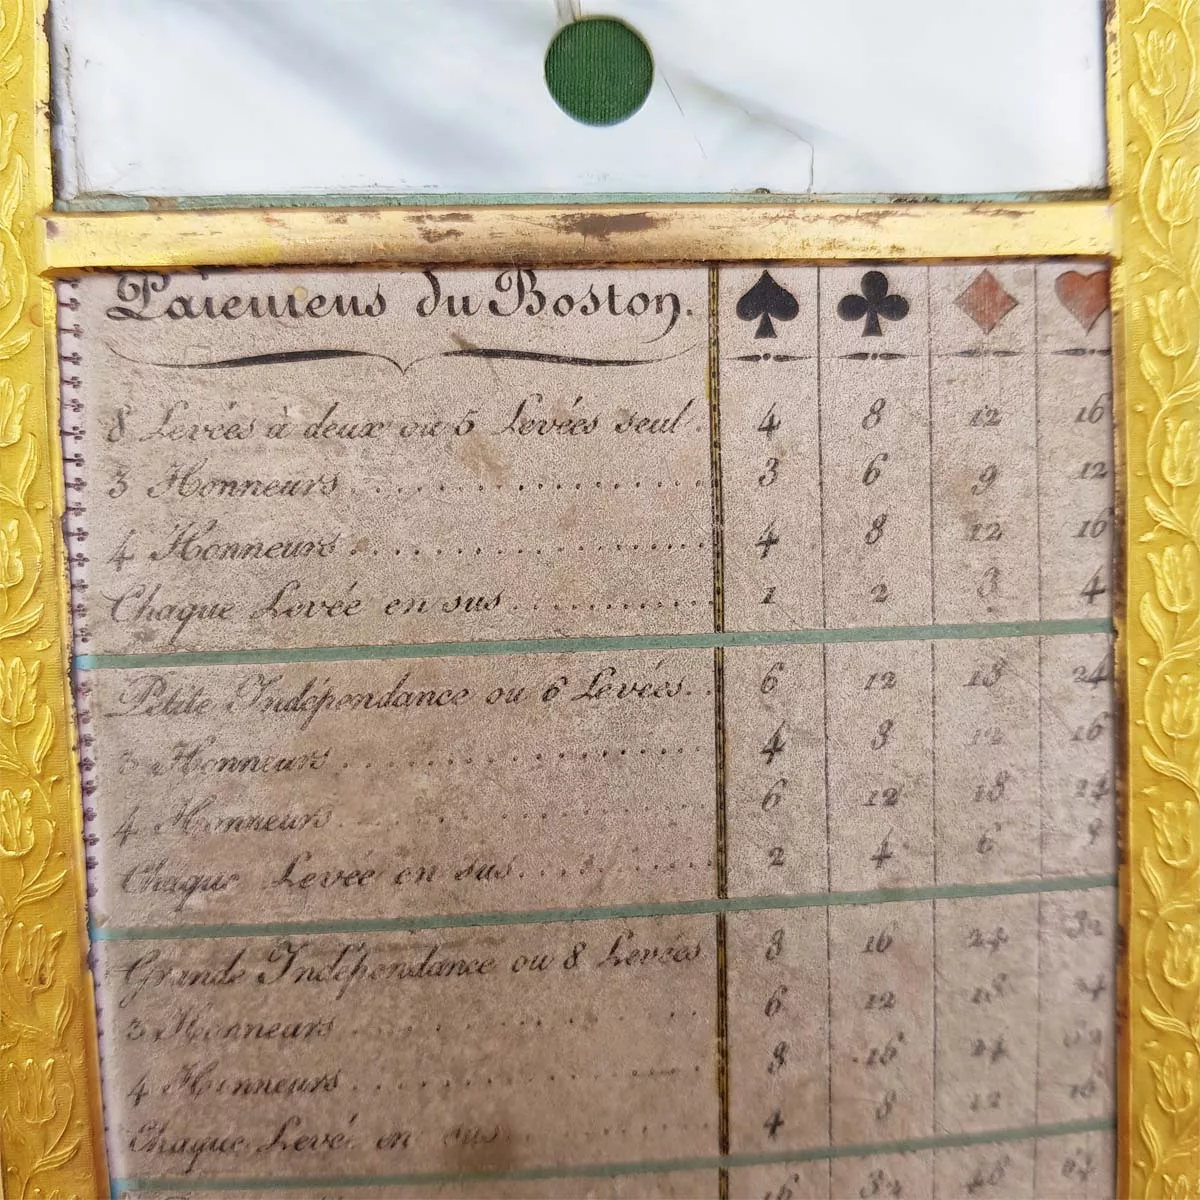 Paiemens du Boston. ♠ ♣ ♦ ♥
8 Levées à deux ou 5 Levées seul. 4 8 12 16
3 Honneurs 3 6 9 12
4 Honneurs 4 8 12 16
Chaque Levée en sus 1 2 3 4
Petite Indépendance ou 6 Levées 6 12 18 24
3 Honneurs 4 8 12 16
4 Honneurs 6 12 18 24
Chaque Levée en sus 2 4 6
Grande Indépendance ou 8 Levées 8 16 24 32
3 Honneurs 6 12 18 24
4 Honneurs 8 16 24 32
Chaque Levée en sus 4 8 12 16
16 32 48 64